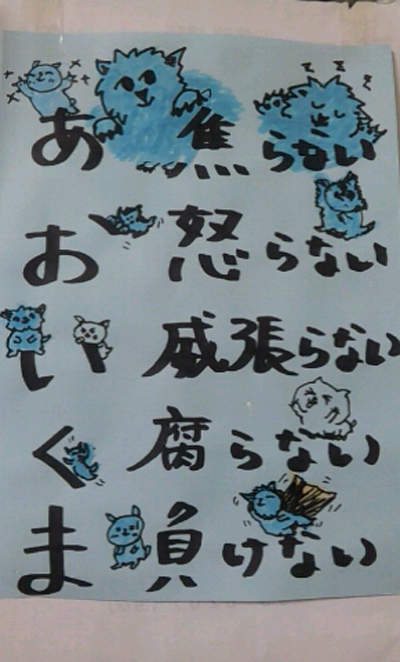 あ 焦らない
お 怒らない
い 威張らない
く 腐らない
ま 負けない